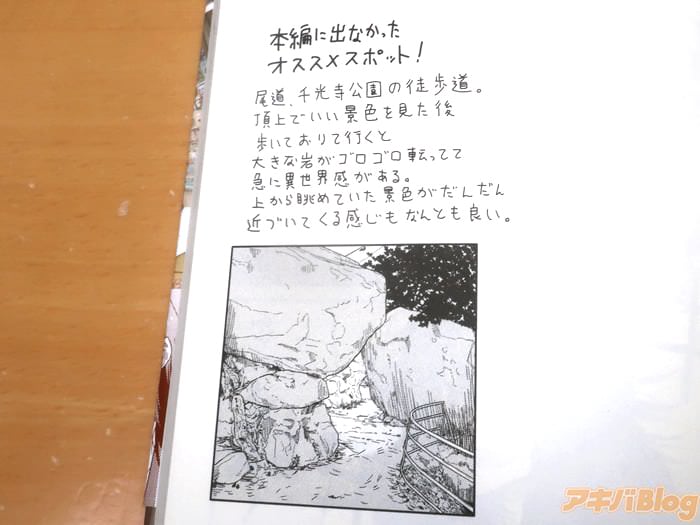 本編に出なかった
オススメスポット!
尾道、千光寺公園の徒歩道。
頂上でいい景色を見た後
歩いておりて行くと
大きな岩がゴロゴロ転ってて
急に異世界感がある。
上から眺めていた景色がだんだん
近づいてくる感じもなんとも良い。
アキバBlog